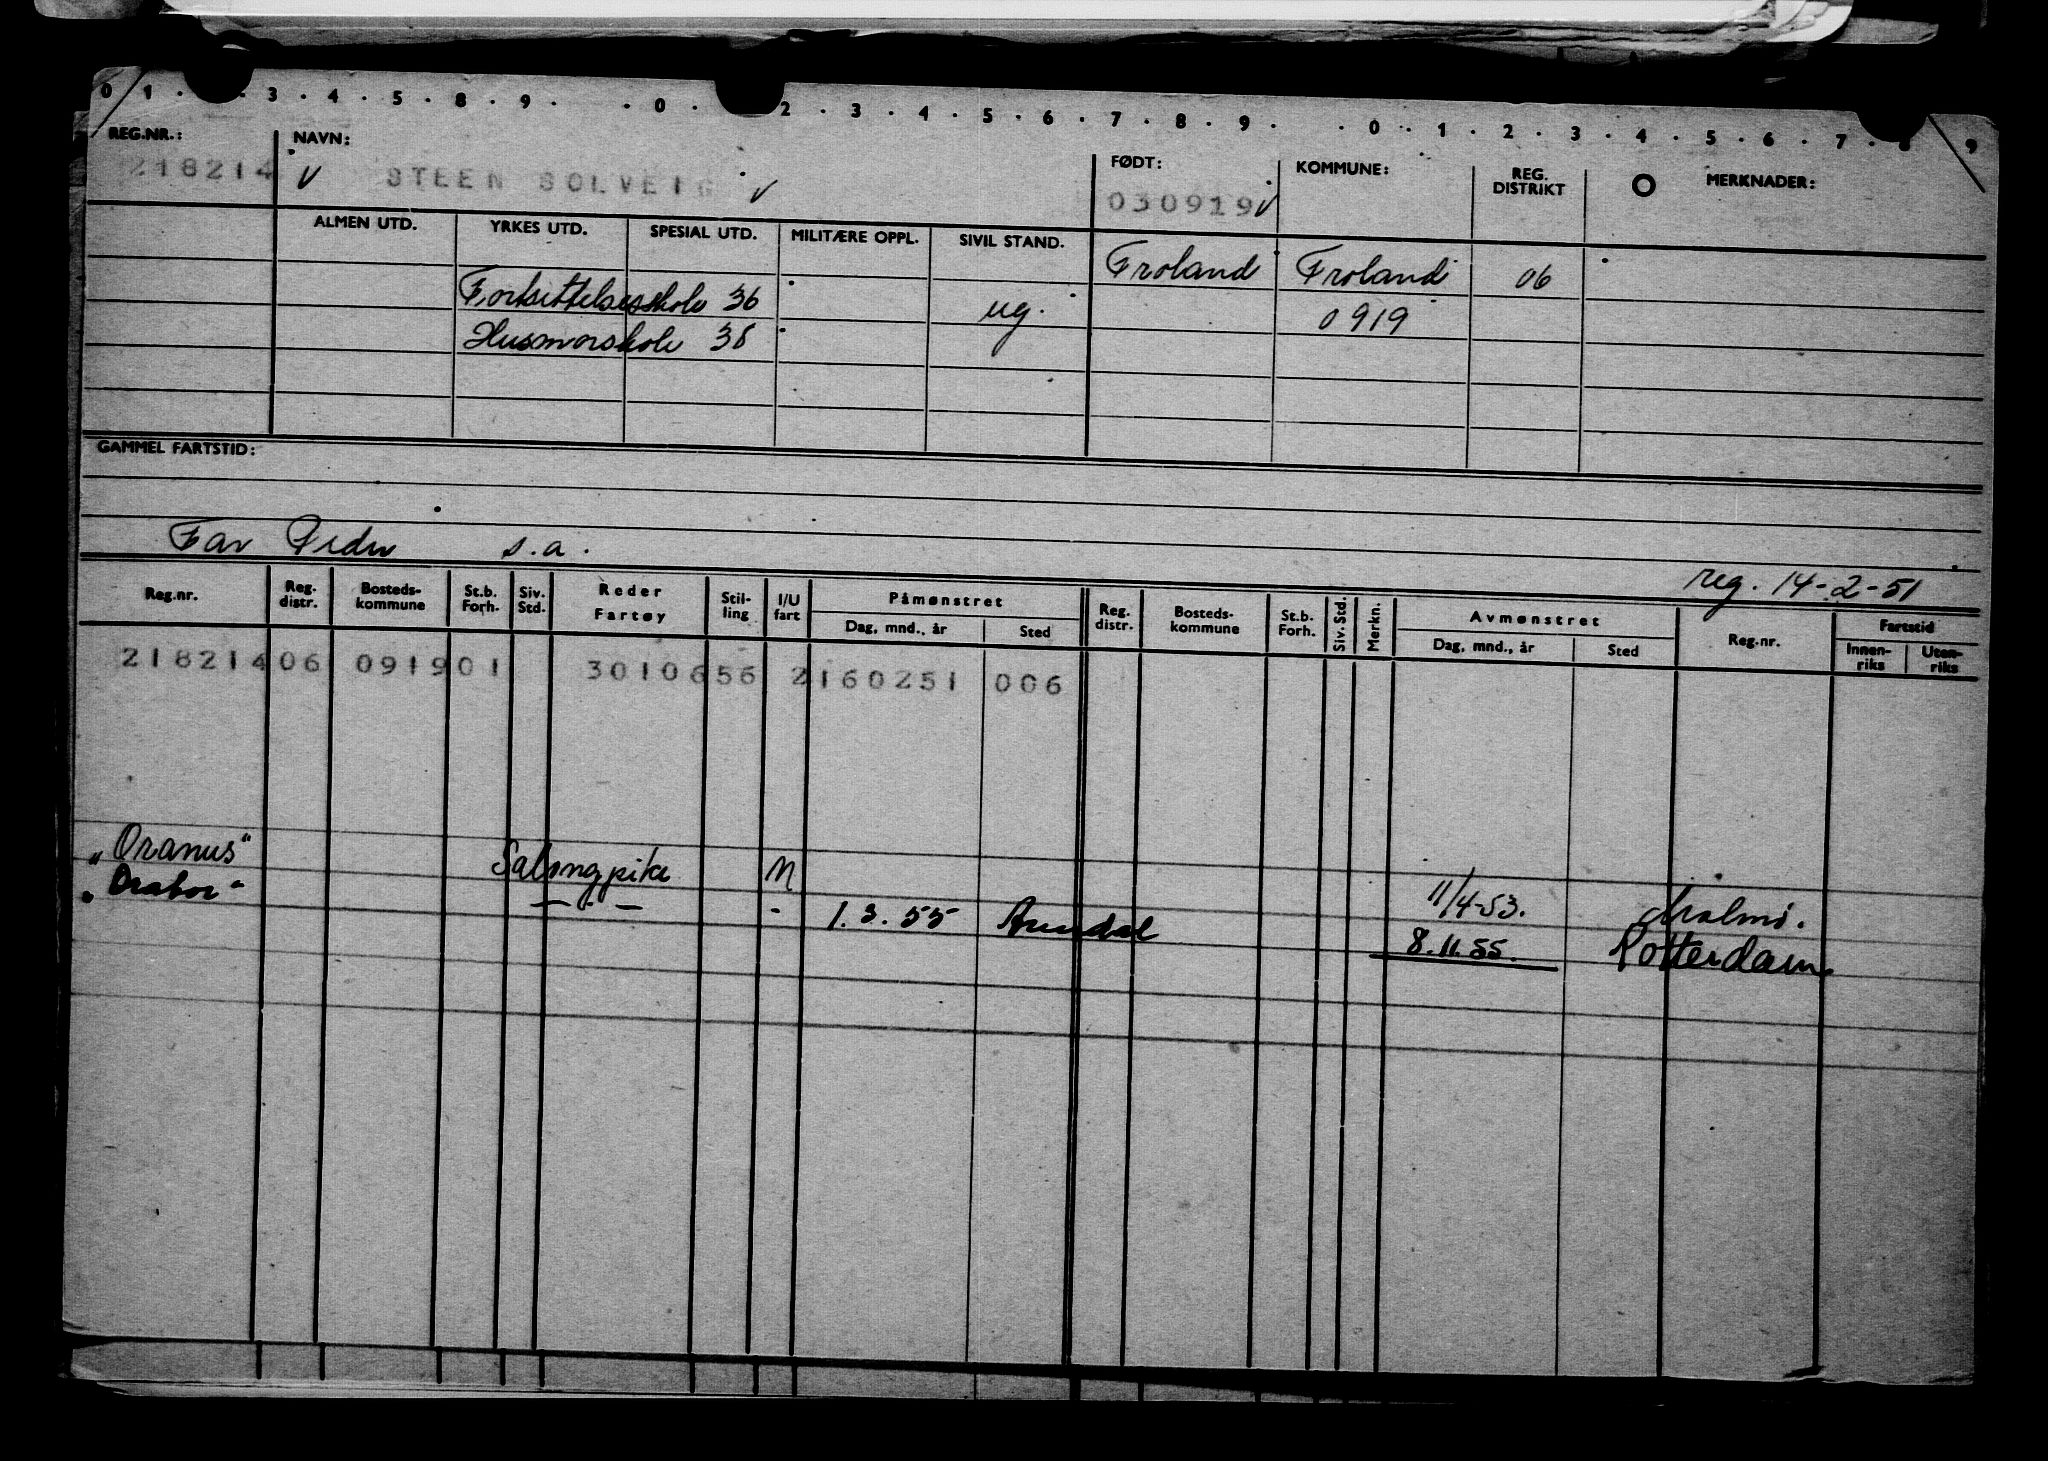 0 1 . . 3 . 4 . 5 . 8 . 9 . . 0 . 2 . 3 . 4 . 5 . 6 . 7 . 8 . 9 . . 0 . 1 . 2 . 3 . 4 . 5 . 6 . 7 . 8 9
REG.NR.: NAVN: FØDT: KOMMUNE: REG. DISTRIKT MERKNADER:
218214 STEEN SOLVEIG 030919
ALMEN UTD. YRKES UTD. SPESIAL UTD. MILITÆRE OPPL. SIVIL STAND.
Froland Froland 06
Fortsettelsesskole 36 ug. 0919
Husmorskole 38
GAMMEL FARTSTID:
Far Peder s.a.
reg. 14-2-51
Reg.nr. Reg. distr. Bosteds-kommune St.b. Forh. Siv. Std. Reder Fartøy Stil-ling I/U fart Påmønstret Dag, mnd., år Sted Reg. distr. Bosteds-kommune St.b. Forh. Siv. Std. Merkn. Avmønstret Dag, mnd., år Sted Reg.nr. Fartstid Innen-riks Uten-riks
218214 06 0919 01 3010656 2 160251 006
"Oranus" Salongpike M 11/4-53. Malmø.
"Drabor" - - - - 1.3.55 Arendal 8.11.55. Rotterdam